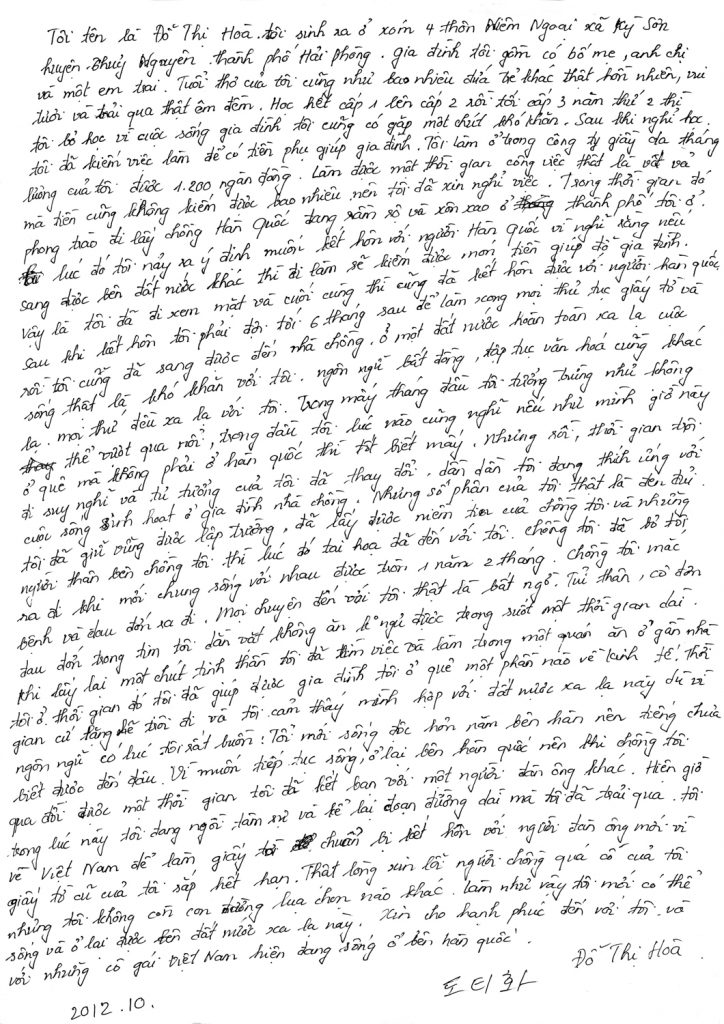 Tôi tên là Đỗ Thị Hoà. tôi sinh ra ở xóm 4 thôn Niêm Ngoại xã Kỳ Sơn
huyện Thuỷ Nguyên thành phố Hải Phòng. gia đình tôi gồm có bố mẹ, anh chị
và một em trai. Tuổi thơ của tôi cũng như bao nhiêu đứa trẻ khác thật hồn nhiên, vui
tươi và trải qua thật êm đềm. Học hết cấp 1 lên cấp 2 rồi tới cấp 3 năm thứ 2 thì
tôi bỏ học vì cuộc sống gia đình tôi cũng có gặp một chút khó khăn. Sau khi nghỉ học.
tôi đã kiếm việc làm để có tiền phụ giúp gia đình. Tôi làm ở trong công ty giầy da tháng
lương của tôi được 1.200 ngàn đồng. Làm được một thời gian công việc thật là vất vả
mà tiền cũng không kiếm được bao nhiêu nên tôi đã xin nghỉ việc. Trong thời gian đó
phong trào đi lấy chồng Hàn Quốc đang rầm rộ và xôn xao ở thành phố tôi ở.
lúc đó tôi nảy ra ý định muốn kết hôn với người Hàn Quốc vì nghĩ rằng nếu
sang được bên đất nước khác thì đi làm sẽ kiếm được món tiền giúp đỡ gia đình.
vậy là tôi đã đi xem mặt và cuối cùng thì cũng đã kết hôn được với người hàn quốc
sau khi kết hôn tôi phải đợi tới 6 tháng sau để làm xong mọi thủ tục giấy tờ và
rồi tôi cũng đã sang được đến nhà chồng. ở một đất nước hoàn toàn xa lạ cuộc
sống thật là khó khăn với tôi. ngôn ngữ bất đồng, tập tục văn hoá cũng khác
lạ. mọi thứ đều xa lạ với tôi. Trong mấy tháng đầu tôi tưởng trừng như không
thể vượt qua nổi, trong đầu tôi lúc nào cũng nghĩ nếu như mình giờ này
ở quê mà không phải ở hàn quốc thì tốt biết mấy. Nhưng rồi, thời gian trôi
đi suy nghĩ và tư tưởng của tôi đã thay đổi. dần dần tôi đang thích ứng với
cuộc sống sinh hoạt ở gia đình nhà chồng. Nhưng số phận của tôi thật là đen đủi.
tôi đã giữ vững được lập trường, đã lấy được niềm tin của chồng tôi và những
người thân bên chồng tôi thì lúc đó tai hoạ đã đến với tôi. chồng tôi đã bỏ tôi
ra đi khi mới chung sống với nhau được tròn 1 năm 2 tháng. chồng tôi mắc
bệnh và đau đớn ra đi. Mọi chuyện đến với tôi thật là bất ngờ. Tủi thân, cô đơn
đau đớn trong tim tôi dằn vặt không ăn k ngủ được trong suốt một thời gian dài.
khi lấy lại một chút tinh thần tôi đã tìm việc và làm trong một quán ăn ở gần nhà
tôi ở. thời gian đó tôi đã giúp được gia đình tôi ở quê một phần nào về kinh tế. Thời
gian cứ lặng lẽ trôi đi và tôi cảm thấy mình hợp với đất nước xa lạ này dù vì
ngôn ngữ có lúc tôi rất buồn: Tôi mới sống độc hơn năm bên hàn nên tiếng chưa
biết được đến đâu. Vì muốn tiếp tục sống, ở lại bên hàn quốc nên khi chồng tôi
qua đời được một thời gian tôi đã kết bạn với một người đàn ông khác. Hiện giờ
trong lúc này tôi đang ngồi tâm sự và kể lại đoạn đường dài mà tôi đã trải qua. tôi
về Việt Nam để làm giấy tờ chuẩn bị kết hôn với người đàn ông mới vì
giấy tờ cũ của tôi sắp hết hạn. Thật lòng xin lỗi người chồng quá cố của tôi
nhưng tôi không còn con đường lựa chọn nào khác. làm như vậy tôi mới có thể
sống và ở lại được bên đất nước xa lạ này. Xin cho hạnh phúc đến với tôi và
với những cô gái việt Nam hiện đang sống ở bên hàn quốc.
Đỗ Thị Hoà.
도티화
2012.10.